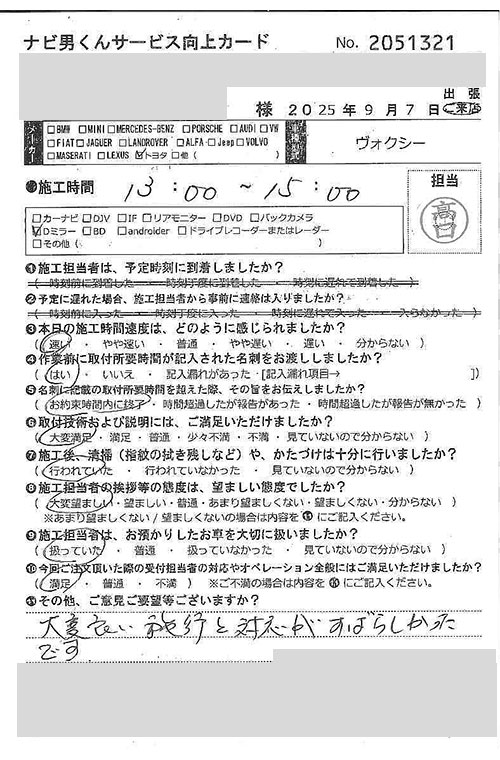 ナビ男くんサービス向上カード No. 2051321
様 2025年9月7日 出張 ご来店
メーカー □BMW □MINI □MERCEDES-BENZ □PORSCHE □AUDI □VW
□FIAT □JAGUER □LANDROVER □ALFA □Jeep □VOLVO
□MASERATI □LEXUS ☑トヨタ □他 ( )
ヴォクシー
●施工時間 13:00 ~ 15:00
担当
□カーナビ □DJV □IF □リアモニター □DVD □バックカメラ
☑Dミラー □BD □androider □ドライブレコーダーまたはレーダー
□その他 ( )
❶施工担当者は、予定時刻に到着しましたか?
( 時刻前に到着した ・ 時刻丁度に到着した ・ 時刻に遅れて到着した )
❷予定に遅れた場合、施工担当者から事前に連絡は入りましたか?
( 時刻前に入った ・ 時刻丁度に入った ・ 時刻に遅れて入った ・ 入らなかった )
❸本日の施工時間速度は、どのように感じられましたか?
( 速い ・ やや速い ・ 普通 ・ やや遅い ・ 遅い ・ 分からない )
❹作業前に取付所要時間が記入された名刺をお渡ししましたか?
( はい ・ いいえ ・ 記入漏れがあった・[記入漏れ項目→ ])
❺名刺に記載の取付所要時間を超えた際、その旨をお伝えしましたか?
( お約束時間内に終了 ・ 時間超過したが報告があった ・ 時間超過したが報告が無かった )
❻取付技術および説明には、ご満足いただけましたか?
( 大変満足 ・ 満足 ・ 普通 ・ 少々不満 ・ 不満 ・ 見ていないので分からない )
❼施工後、清掃(指紋の拭き残しなど)や、かたづけは十分に行いましたか?
( 行われていた ・ 行われていなかった ・ 見ていないので分からない )
❽施工担当者の挨拶等の態度は、望ましい態度でしたか?
( 大変望ましい ・ 望ましい ・ 普通 ・ あまり望ましくない ・ 望ましくない ・ 分からない )
※あまり望ましくない / 望ましくないの場合は内容を⓫にご記入ください。
❾施工担当者は、お預かりしたお車を大切に扱いましたか?
( 扱っていた ・ 普通 ・ 扱っていなかった ・ 見ていないので分からない )
❿今回ご注文頂いた際の受付担当者の対応やオペレーション全般にはご満足いただけましたか?
( 満足 ・ 普通 ・ 不満 ) ※ご不満の場合は内容を⓫にご記入ください。
⓫その他、ご意見ご要望等ございますか?
大変良い施行と対応がすばらしかった
です